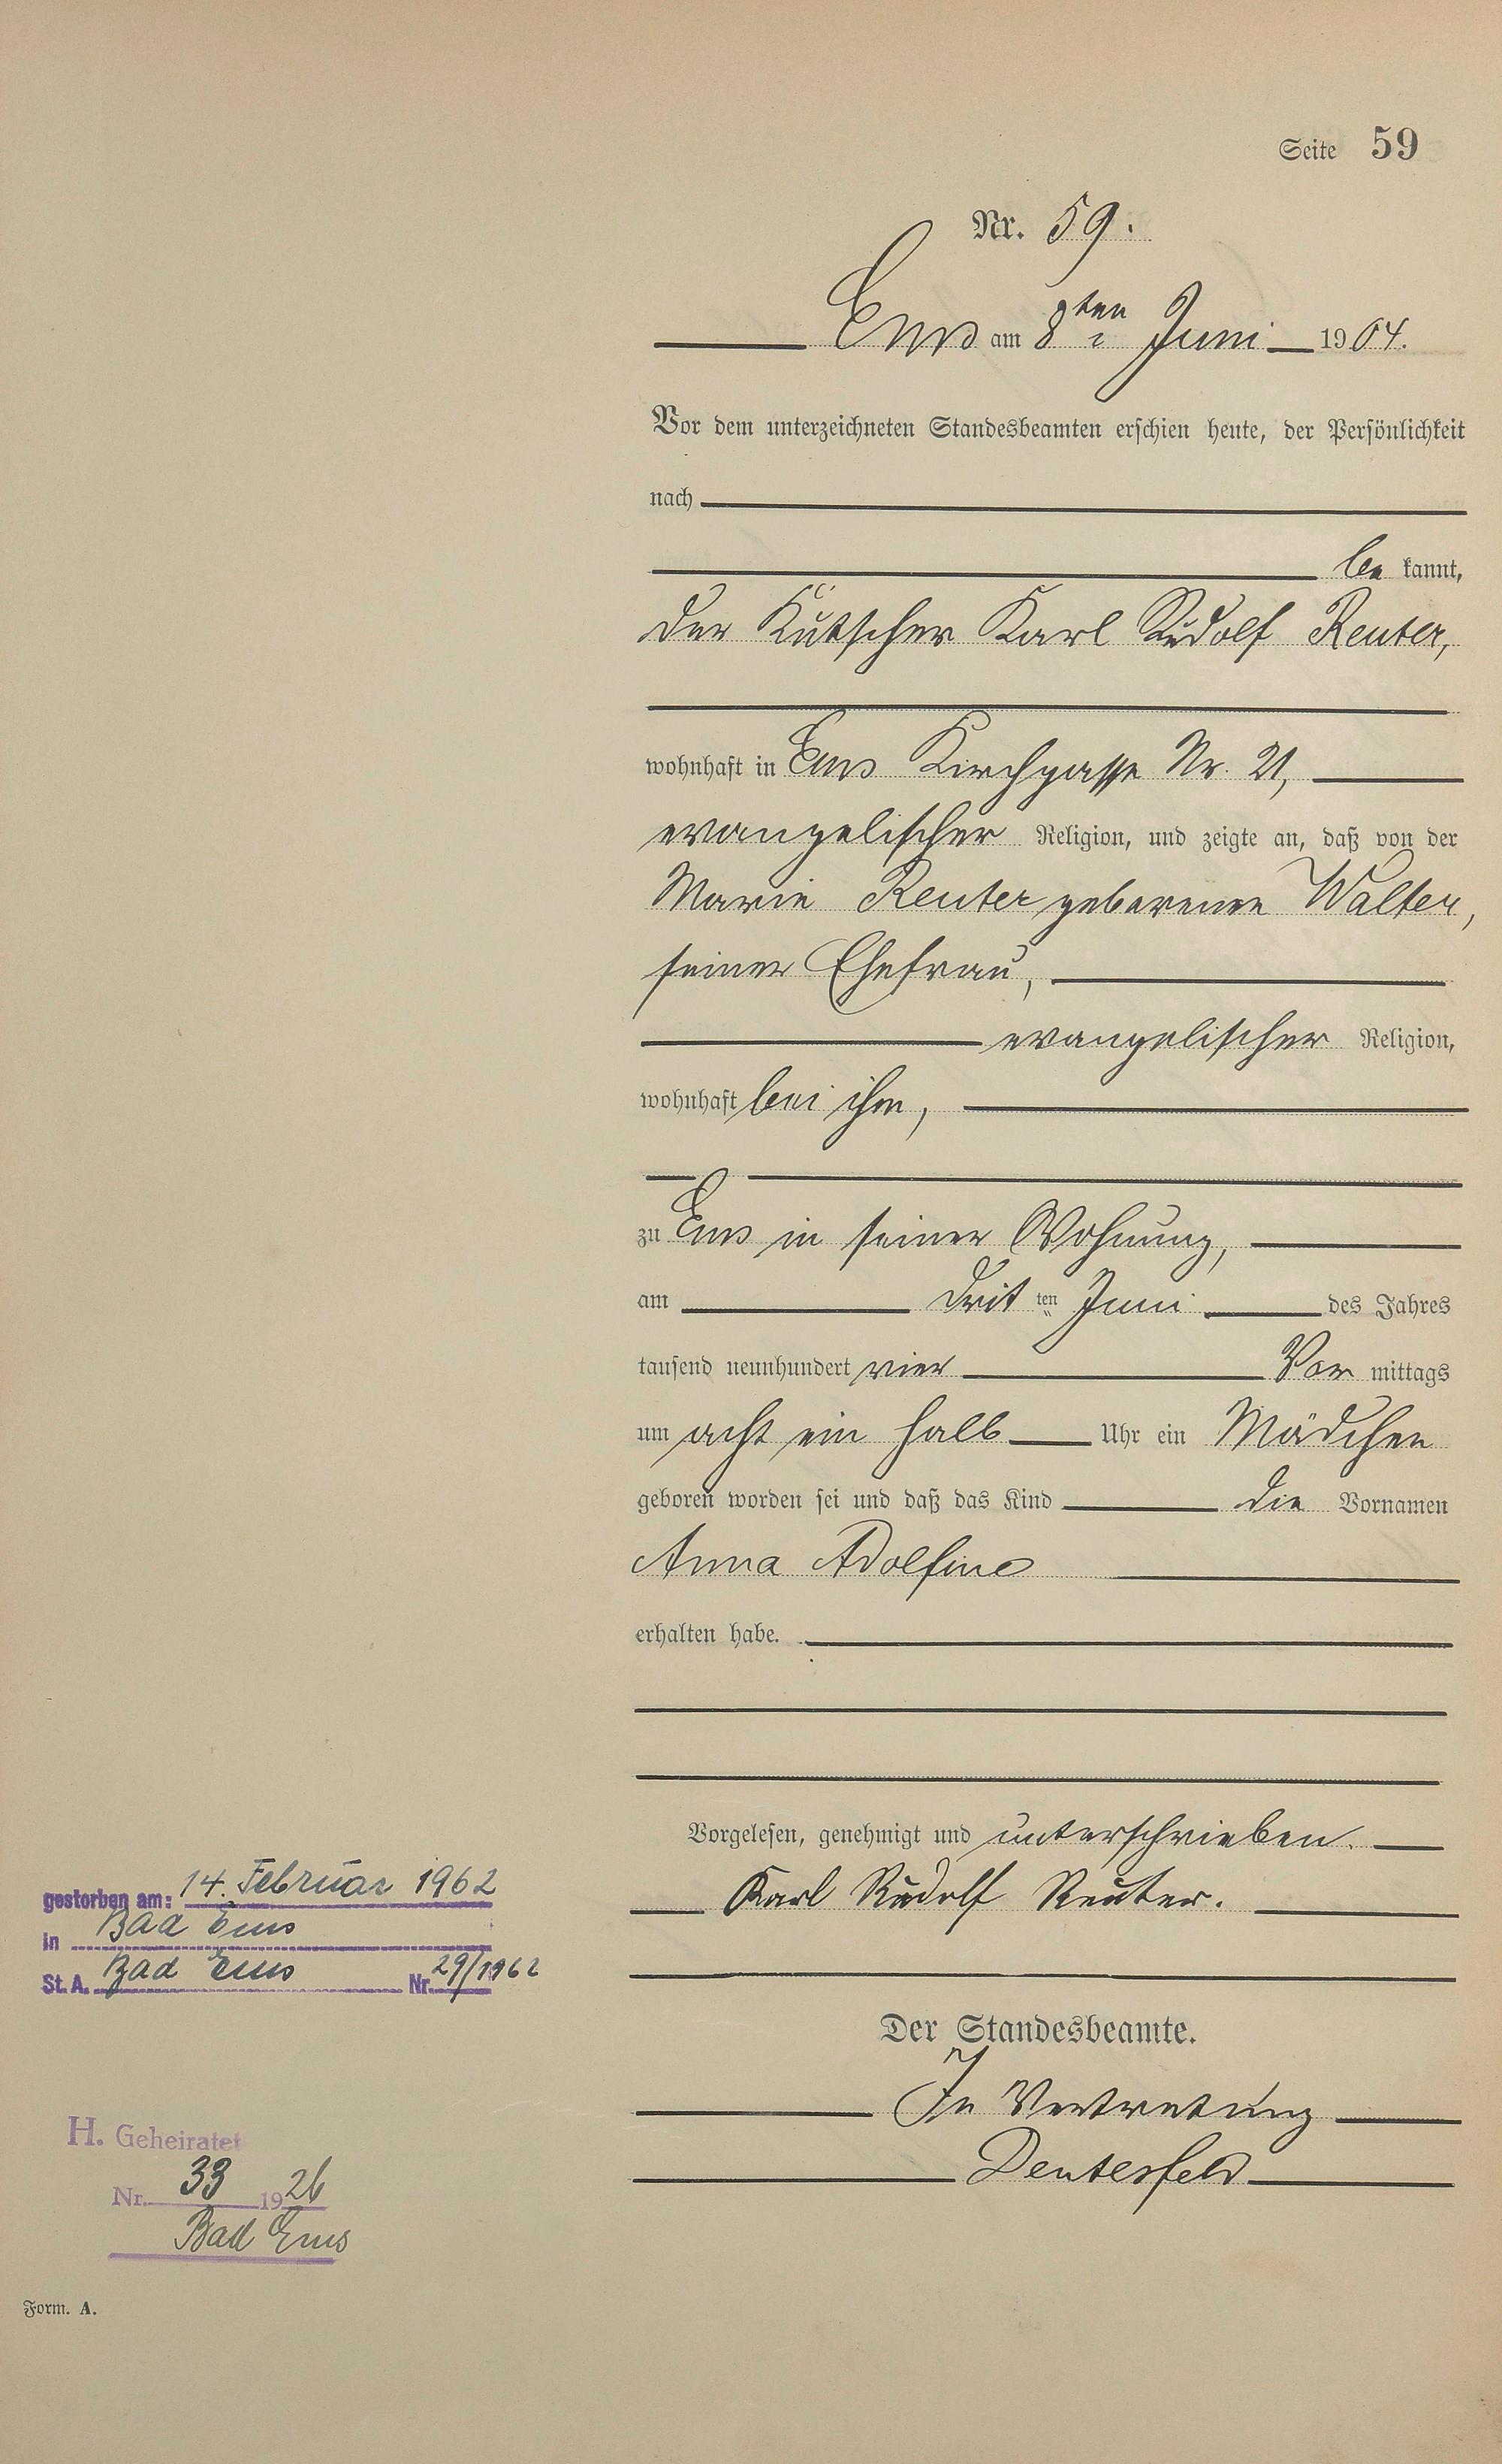 Seite 59
Nr. 59.
Ems am 8ten Juni 1904.
Vor dem unterzeichneten Standesbeamten erschien heute, der Persönlichkeit
nach
be kannt,
der Kutscher Karl Rudolf Reuter,
wohnhaft in Ems Kirchgasse Nr. 21,
evangelischer Religion, und zeigte an, daß von der
Marie Reuter geborenen Walter,
seiner Ehefrau,
evangelischer Religion,
wohnhaft bei ihm,
zu Ems in seiner Wohnung,
am drit ten Juni des Jahres
tausend neunhundert vier Vor mittags
um acht ein halb Uhr ein Mädchen
geboren worden sei und daß das Kind die Vornamen
Anna Adolfine
erhalten habe.
Vorgelesen, genehmigt und unterschrieben.
Karl Rudolf Reuter.
Der Standesbeamte.
In Vertretung
Deutesfeld
gestorben am: 14. Februar 1962
in Bad Ems
St. A. Bad Ems Nr. 29/1962
H. Geheiratet
Nr. 33 1926
Bad Ems
Form. A.